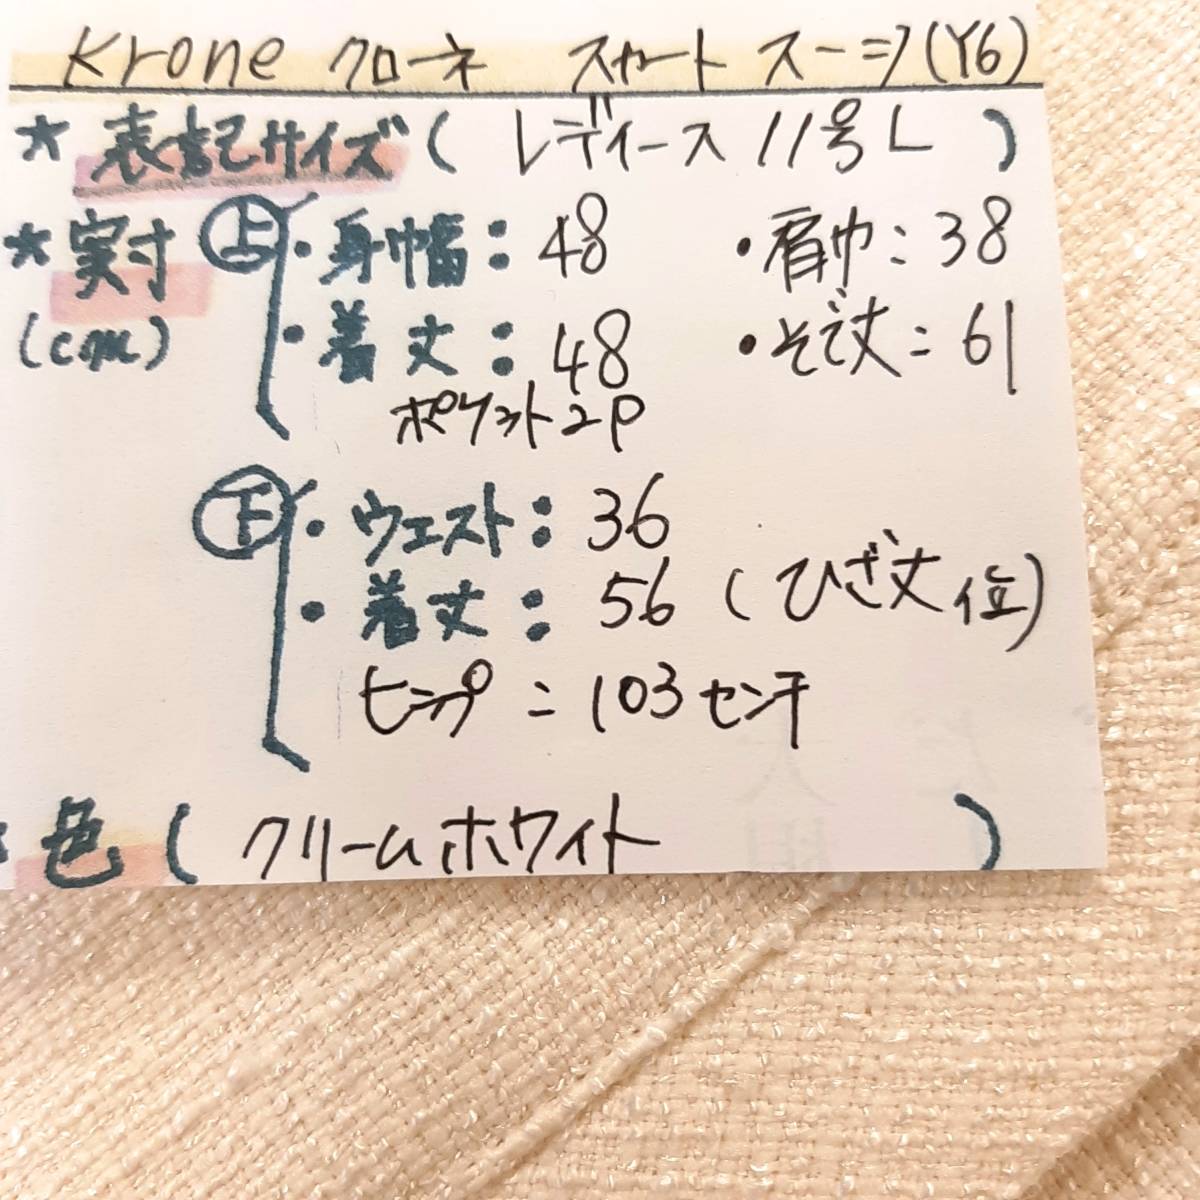 Krone クローネ スカート スーツ(Y6)
★表記サイズ( レディース 11号 L )
★実寸 上 ・身幅:48 ・肩巾:38
(cm) ・着丈:48 ・そで丈:61
ポケット2P
下 ・ウェスト:36
・着丈:56 (ひざ丈位)
ヒップ:103センチ
色( クリームホワイト )